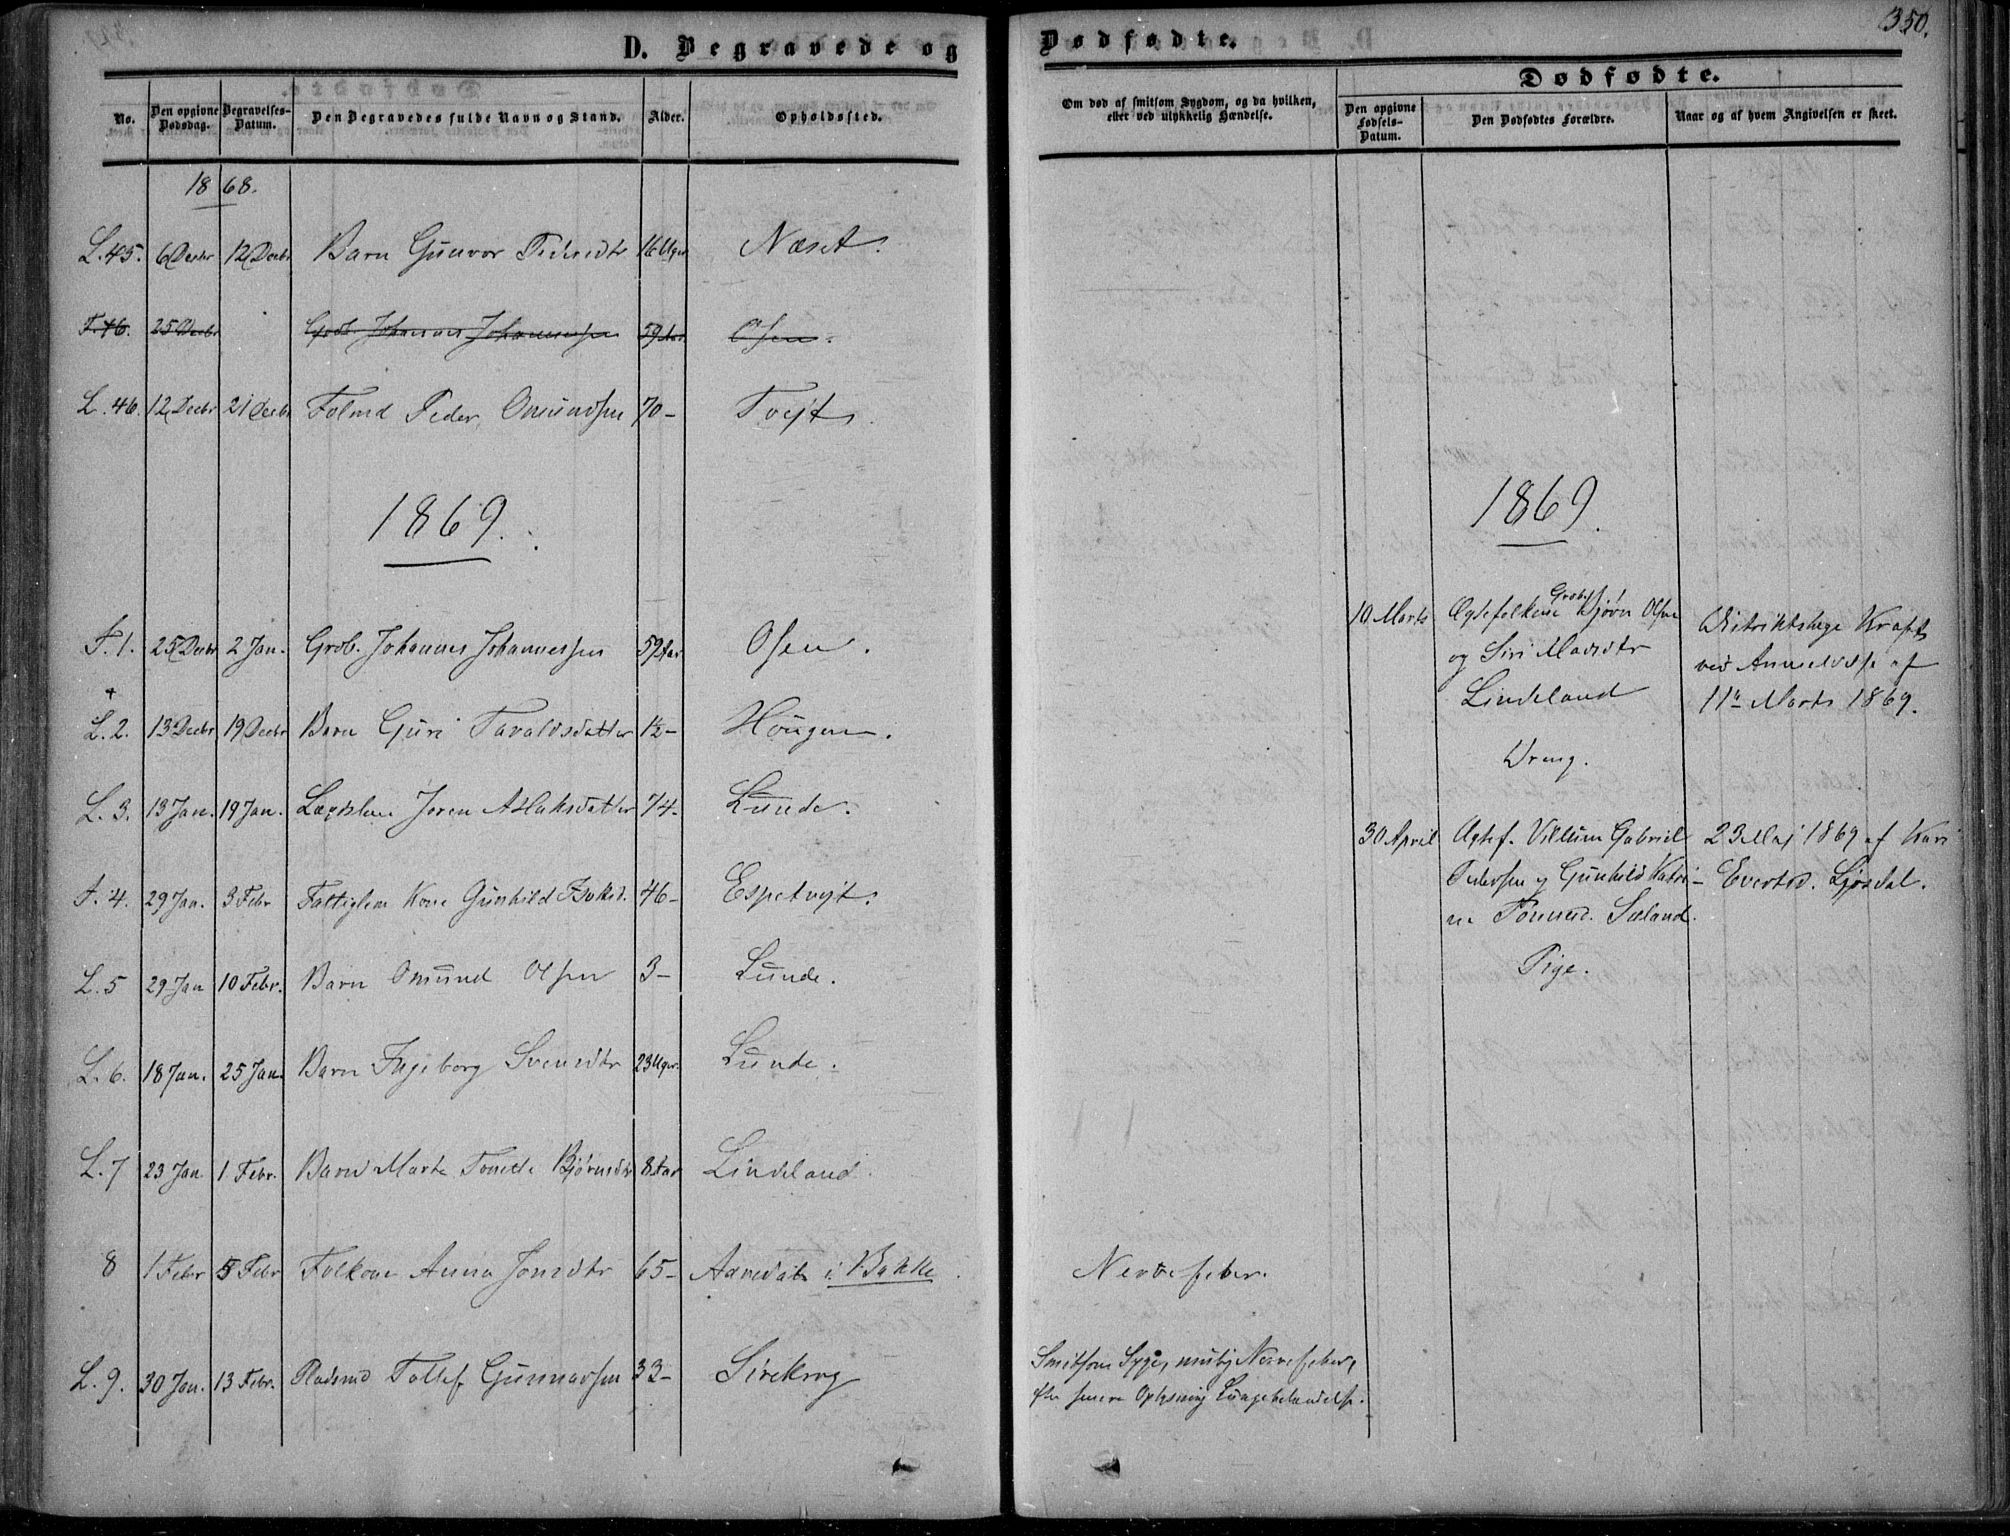 350.
D. Begravede og Dødfødte.
No. Den opgivne Dødsdag. Begravelses-Datum. Den Begravedes fulde Navn og Stand. Alder. Opholdssted.
Om død af smitsom Sygdom, og da hvilken, eller ved ulykkelig Hændelse.
Dødfødte.
Den opgivne Fødsels-Datum. Den Dødfødtes Forældre. Naar og af hvem Angivelsen er skeet.
1868.
L. 45. 6 Decbr 12 Decbr Barn Gunvor Pedersdtr 16 Uger Næset.
F. 46. 25 Decbr Grdb. Johannes Johannessen 59 Aar Osen.
L. 46. 12 Decbr 21 Decbr Folmd Peder Omundsen 70 - Tvejt
1869.
F. 1. 25 Decbr 2 Jan. Grdb. Johannes Johannessen 59 Aar Osen.
L. 2. 13 Decbr 19 Decbr Barn Guri Tavaldsdatter 1½ - Hougen.
L. 3. 13 Jan. 19 Jan. Lægdslem Joren Aslaksdatter 74 - Lunde.
F. 4. 29 Jan. 3 Febr Fattiglem Kone Gunhild 46 - Espetvejt.
L. 5 29 Jan 10 Febr. Barn Omund Olsen 3 - Lunde.
L. 6. 18 Jan. 25 Jan. Barn Ingeborg Svensdtr 23 Uger Lunde.
L. 7 23 Jan. 1 Febr. Barn Marte Tonette Bjørnsdtr 8 Aar Lindeland
8 1 Febr 5 Febr Folkone Anna Jonsdtr 65 - Aamdal i Bakke.
Nervefeber.
L. 9. 30 Jan. 13 Febr. Tollef Gunnarsen 33 - Sirekrog
Smitsom Syge, Nervefeber,
efter senere Oplysning Lungebetændelse.
1869.
10 Marts Ægtefolkene Grdbr Bjørn Olsen
og Siri Madsdtr
Lindeland
Dreng.
Distriktslæge Kraft
ved Anmeldelse af
11te Marts 1869.
30 April Ægtef. Villum Gabriel
Pedersen og Gunhild Katri-
ne Tønnesd. Sæland.
Pige.
23 Maj 1869 af Kari
Evertsd. Ljosdal.